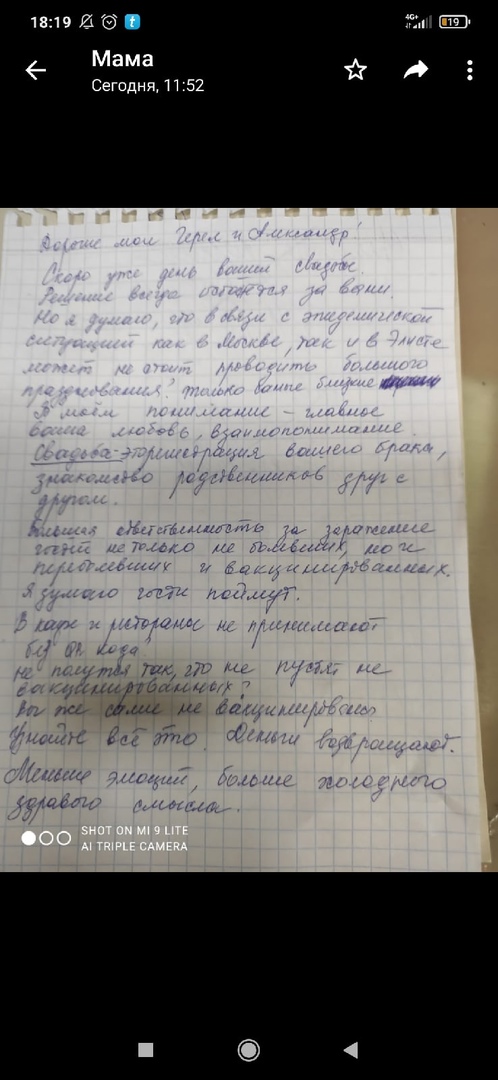 18:19
4G+
19
Мама
Сегодня, 11:52
Дорогие мои Герел и Александр!
Скоро уже день вашей свадьбы.
Решение всегда остается за вами.
Но я думаю, что в связи с эпидемической
ситуацией как в Москве, так и в Элисте
может не стоит проводить большого
празднования? Только самые близкие
В моём понимание – главное
ваша любовь, взаимопонимание.
Свадьба-это регистрация вашего брака,
знакомство родственников друг с
другом.
Большая ответственность за заражение
гостей не только не болевших, но и
переболевших и вакцинированных.
Я думаю гости поймут.
В кафе и рестораны не принимают
без QR кода.
Не получится так, что не пустят не
вакцинированных?
Вы же сами не вакцинированы
Узнайте всё это. Деньги возвращают.
Меньше эмоций, больше холодного
здравого смысла.
SHOT ON MI 9 LITE
AI TRIPLE CAMERA